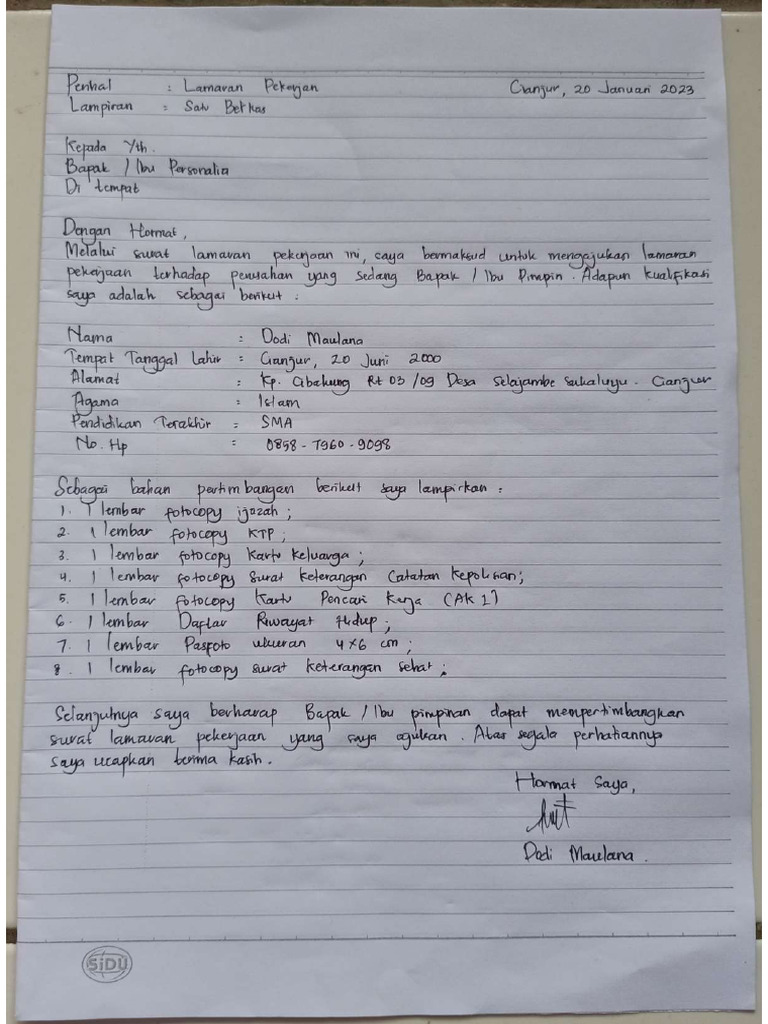 Perihal : Lamaran Pekerjan Cianjur, 20 Januari 2023
Lampiran : Satu Berkas
Kepada Yth.
Bapak / Ibu Personalia
Di tempat
Dengan Hormat,
Melalui surat lamaran pekerjaan ini, saya bermaksud untuk mengajukan lamaran
pekerjaan terhadap perusahan yang sedang Bapak / Ibu Pimpin. Adapun kualifikasi
saya adalah sebagai berikut :
Nama : Dodi Maulana
Tempat Tanggal Lahir : Cianjur, 20 Juni 2000
Alamat : Kp. Cibakung Rt 03/09 Desa Selajambe Sukaluyu - Cianjur
Agama : Islam
Pendidikan Terakhir : SMA
No. Hp : 0858-7960-9098
Sebagai bahan pertimbangan berikut saya lampirkan :
1. 1 lembar fotocopy ijazah ;
2. 1 lembar fotocopy KTP ;
3. 1 lembar fotocopy Kartu Keluarga ;
4. 1 lembar fotocopy Surat Keterangan Catatan Kepolisian;
5. 1 lembar fotocopy Kartu Pencari Kerja (AK 1)
6. 1 lembar Daftar Riwayat Hidup ;
7. 1 lembar Pasfoto ukuran 4x6 cm ;
8. 1 lembar fotocopy surat keterangan sehat ;
Selanjutnya saya berharap Bapak / Ibu pimpinan dapat mempertimbangkan
surat lamaran pekerjaan yang saya ajukan. Atas segala perhatiannya
saya ucapkan terima kasih.
Hormat Saya,
Dodi Maulana.
SiDU